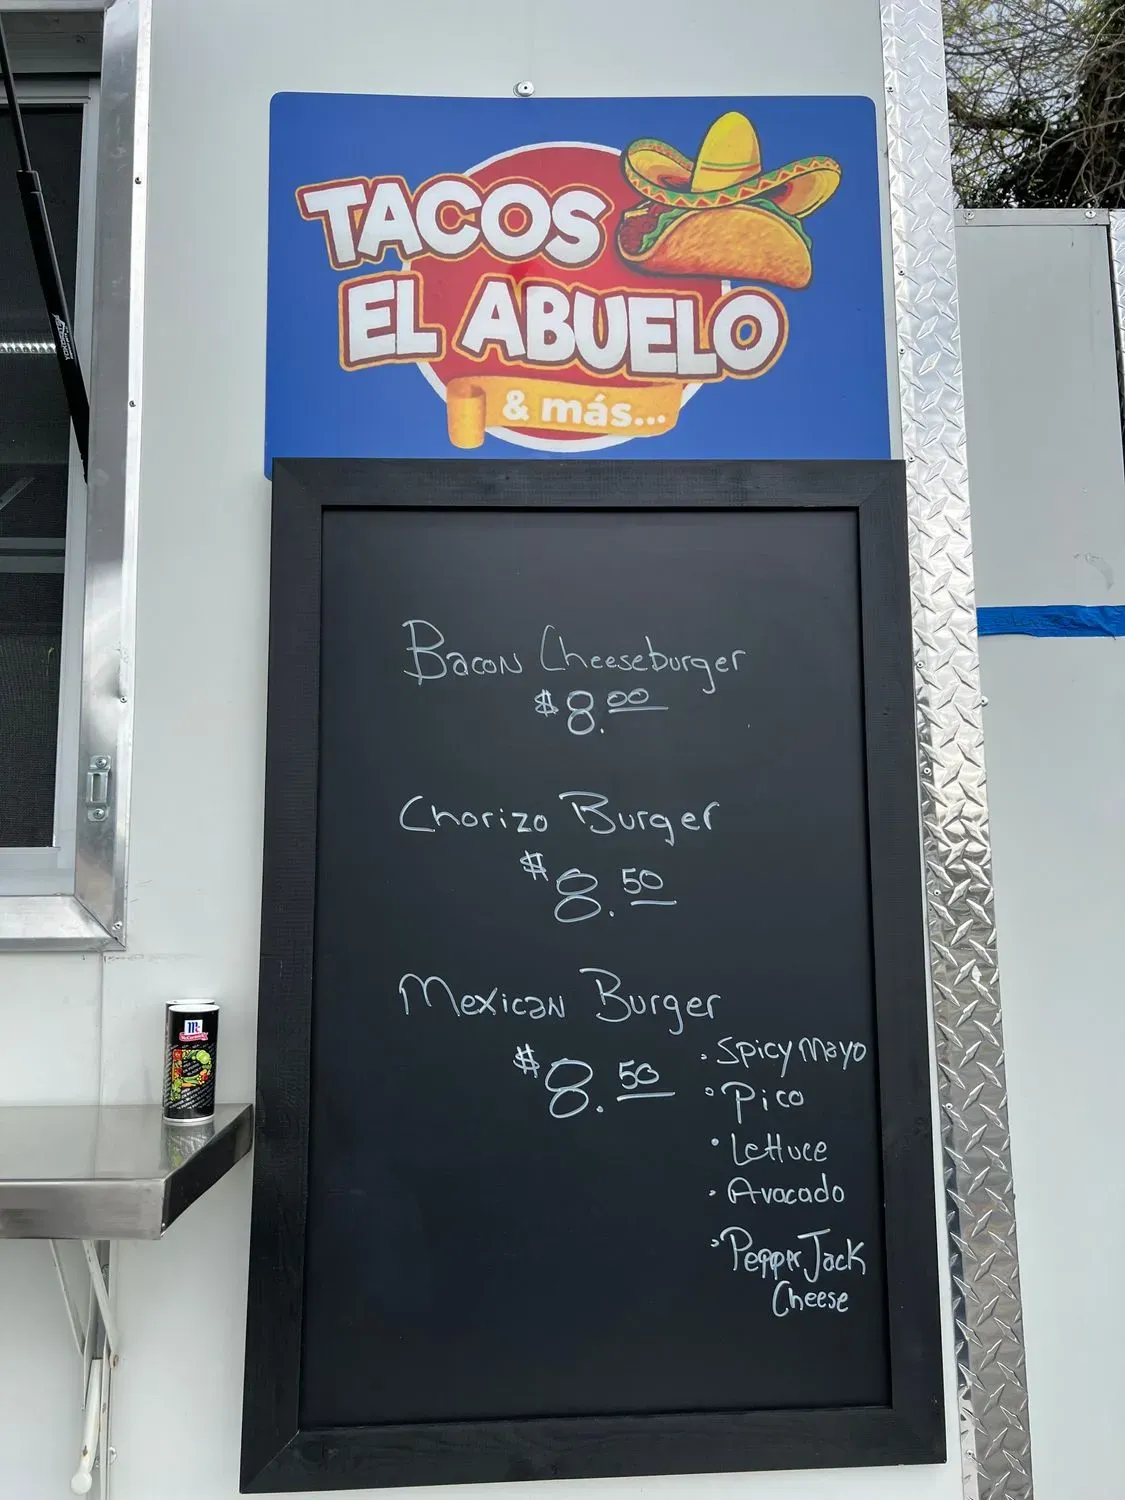 TACOS
EL ABUELO
& más...
Bacon Cheeseburger
$8.00
Chorizo Burger
$8.50
Mexican Burger
$8.50
• Spicy Mayo
• Pico
• Lettuce
• Avocado
• Pepper Jack
Cheese
Mc
McCormick